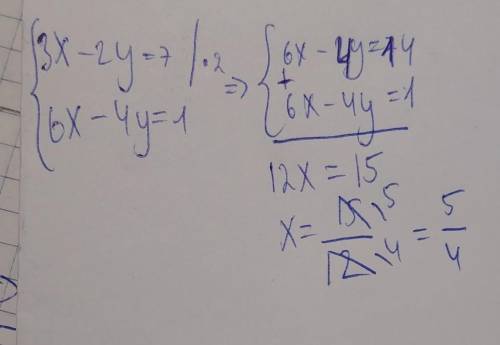 {3x-2y=7 |·2
{6x-4y=1
=> {6x-4y=14
+
6x-4y=1
12x=15
x= 15 5 / 12 4 = 5/4